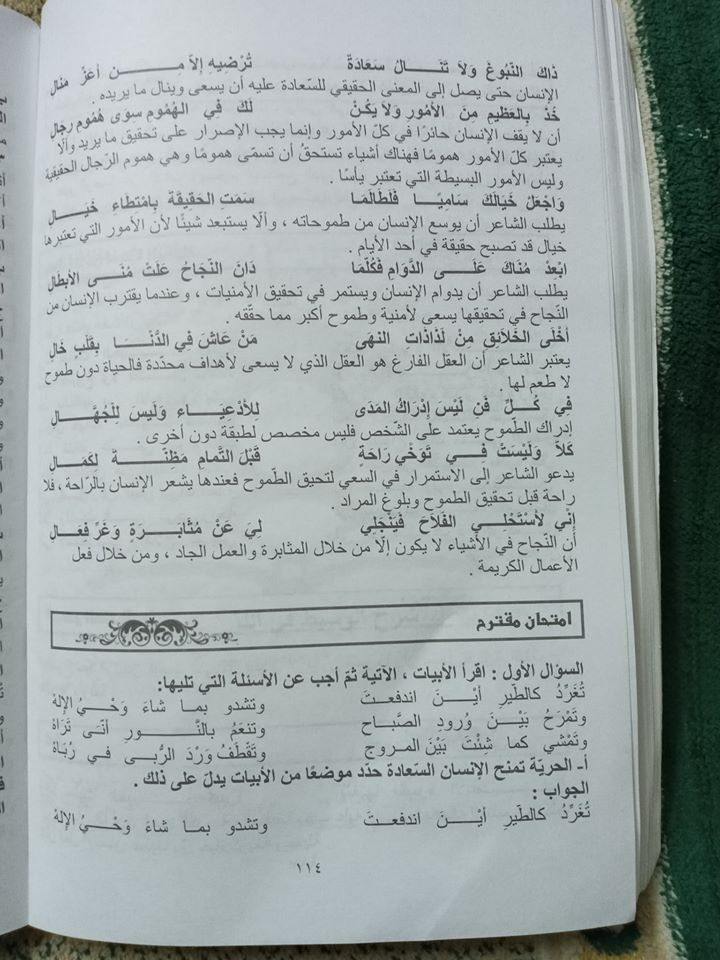 ذاك النّبوغَ وَلاَ تَنَالُ سَعَادَةً تُرْضِيهِ إلاّ مِنْ أعَزّ مَنَالِ
الإنسان حتى يصل إلى المعنى الحقيقي للسّعادة عليه أن يسعى وينال ما يريده .
خُذْ بِالعَظِيمِ مِنَ الأمُورِ وَلاَ يَكُنْ لَكَ فِي الهُمُومِ سِوَى هُمُومِ رِجَالِ
أن لا يقف الإنسان حائرًا في كلّ الأمور وإنما يجب الإصرار على تحقيق ما يريد وألّا
يعتبر كلّ الأمور همومًا فهناك أشياء تستحقُ أن تسمّى همومًا وهي هموم الرّجال الحقيقية
وليس الأمور البسيطة التي تعتبر يأسًا .
وَاجْعَلْ خَيَالَكَ سَامِيًا فَلَطَالَمَا سَمَتِ الحَقِيقَةُ بِامْتِطَاءِ خَيَالِ
يطلب الشاعر أن يوسع الإنسان من طموحاته ، وألّا يستبعد شيئًا لأن الأمور التي تعتبرها
خيال قد تصبح حقيقة في أحد الأيام .
ابْعِدْ مُنَاكَ عَلَى الدَّوَامِ فَكُلَّمَا دَانَ النَّجَاحُ عَلَتْ مُنَى الأبطَالِ
يطلب الشاعر أن يداوم الإنسان ويستمر في تحقيق الأمنيات ، وعندما يقترب الإنسان من
النّجاح في تحقيقها يسعى لأمنية وطموح أكبر مما حقّقه .
أخْلَى الخَلاَئِقِ مِنْ لَذَاذَاتِ النّهَى مَنْ عَاشَ فِي الدُّنْيَا بِقَلْبِ خَالِ
يعتبر الشاعر أن العقل الفارغ هو العقل الذي لا يسعى لأهداف محدّدة فالحياة دون طموح
لا طعم لها .
فِي كُلِّ فَنٍ لَيْسَ إدْرَاكُ المَدَى لِلأدْعِيَاءِ وَلَيْسَ لِلْجُهَّالِ
إدراك الطّموح يعتمد على الشّخص فليس مخصص لطبقة دون أخرى .
كَلاَّ وَلَيْسَتْ فِي تَوَخِّي رَاحَةٍ قَبْلَ التَّمامِ مَظِنَّةٌ لِكَمَالِ
يدعو الشاعر إلى الاستمرار في السعي لتحيق الطّموح فعندها يشعر الإنسان بالرّاحة ، فلا
راحة قبل تحقيق الطموح وبلوغ المراد .
إنِّي لأسْتَحْلِي الفَلاَحَ فَيَنْجَلِي لِيَ عَنْ مُثَابَرَةٍ وَغُرِّ فِعَالِ
أن النّجاح في الأشياء لا يكون إلّا من خلال المثابرة والعمل الجاد ، ومن خلال فعل
الأعمال الكريمة .
امتحان مقترح
السؤال الأول : اقرأ الأبيات ، الآتية ثمّ أجب عن الأسئلة التي تليها:
تُغَرِّدُ كالطّيرِ أيْنَ اندفعتَ وتشدو بما شاءَ وَحْيُ الإلهْ
وتَمْرَحُ بَيْنَ وُرودِ الصَّباح وتنعَمُ بالنُّورِ أنّى تَرَاهْ
وتَمْشي كما شِئْتَ بَيْنَ المروج وتَقْطُفُ وَرْدَ الرُّبى في رُبَاهْ
أ- الحريّة تمنح الإنسان السّعادة حدّد موضعًا من الأبيات يدلّ على ذلك .
الجواب :
تُغَرِّدُ كالطّيرِ أيْنَ اندفعتَ وتشدو بما شاءَ وَحْيُ الإلهْ
١١٤